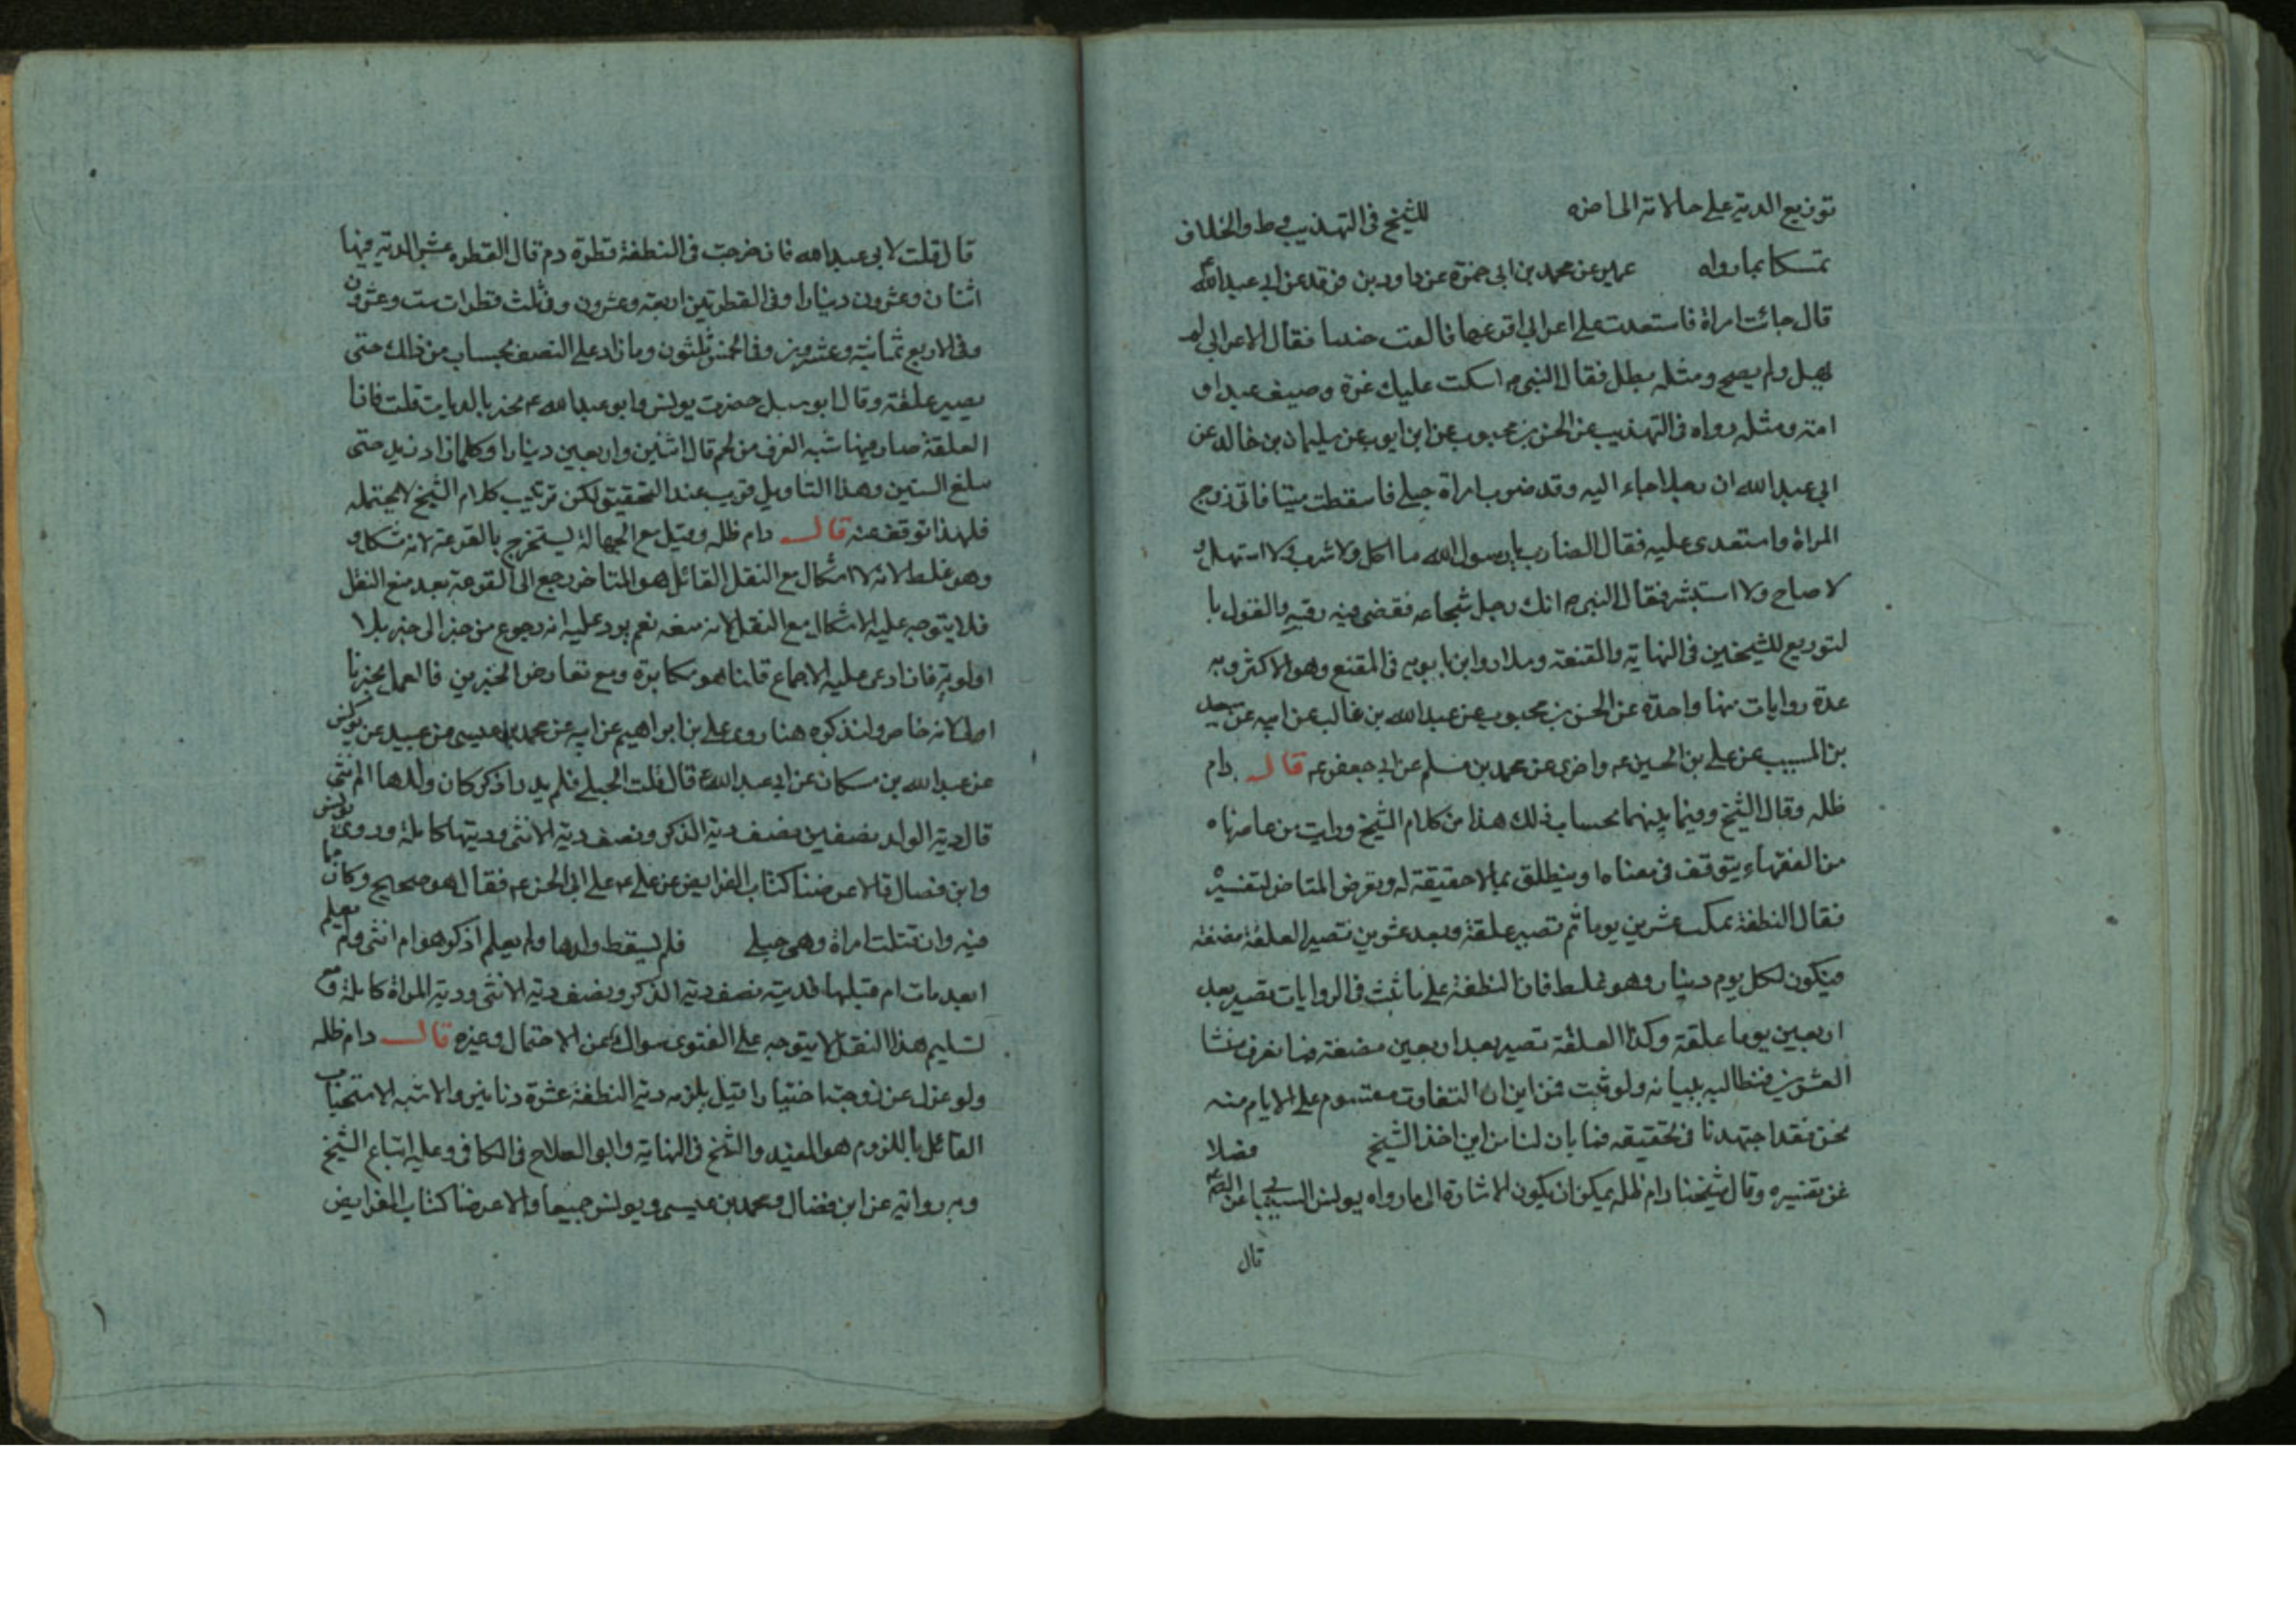 توزيع الدية على حالاته الى اخره للشيخ فى التهذيب وط والخلاف
تمسكا بما رواه عمير عن محمد بن ابى حمزة عن داود بن فرقد عن ابى عبد الله ع
قال جائت امراة فاستعدت على اعرابى افزعها فالقت جنينا فقال الاعرابى لم
يهل ولم يصح ومثله يطل فقال النبى ص اسكت عليك غرة وصيف عبد او
امة ومثله رواه فى التهذيب عن الحسن بن محبوب عن ابن ايوب عن سليمان بن خالد عن
ابى عبد الله ان رجلا جاء اليه وقد ضرب امراة حبلى فاسقطت ميتا فاتى زوج
المراة واستعدى عليه فقال الضارب يا رسول الله ما اكل ولا شرب ولا استهل و
لا صاح ولا استبشر فقال النبى ص انك رجل شجاعه فقضى فيه رقبة والقول با
لتوزيع للشيخين فى النهاية والمقنعة وسلار وابن بابويه فى المقنع وهو الاكثر وبه
عدة روايات منها واحدة عن الحسن بن محبوب عن عبد الله بن غالب عن ابيه عن سعيد
بن المسيب عن على بن الحسين ع واخرى عن محمد بن مسلم عن ابى جعفر ع قال دام
ظله وقال الشيخ وفيما بينهما بحساب ذلك هذا من كلام الشيخ ورايت من عاصرناه
من الفقهاء يتوقف فى معناه او ينطلق بما لا حقيقة له وتعرض المتاخر لتفسيره
فقال النطفة تمكث عشرين يوما ثم تصير علقة وبعد عشرين تصير العلقة مضغة
فيكون لكل يوم دينار وهو غلط فان النطفة على ما ثبت فى الروايات تصير بعد
اربعين يوما علقة وكذا العلقة تصير بعد اربعين مضغة فما نعرف منشا
العشرين فنطالبه ببيانه ولو ثبت فمن اين ان التفاوت مقسوم على الايام منه
نحن فقد اجتهدنا فى تحقيقه فما بان لنا من اين اخذ الشيخ فضلا
عن تفسيره وقال شيخنا دام ظله يمكن ان يكون الاشارة الى ما رواه يونس الشيبانى عن
قال
قال قلت لابى عبد الله فان خرجت فى النطفة قطرة دم قال القطره عشر الدية فيها
اثنان وعشرون دينارا وفى القطرتين اربعة وعشرون وفى ثلث قطرات ست وعشرون
وفى الاربع ثمانية وعشرين وفى الخمس ثلثون وما زاد على النصف بحساب من ذلك حتى
يصير علقة وقال ابو سبل حضرت يونس وابو عبد الله ع يخبر بالديات قلت فاذا
العلقة صار فيها شبه العرف من لحم قال اثنين واربعين دينارا وكلما زاد زيد حتى
يبلغ الستين وهذا التاويل قريب عند التحقيق لكن تركيب كلام الشيخ لا يحتمله
فلهذا توقف عنه قال دام ظله وقيل مع الجهالة يستخرج بالقرعة لانه مشكل و
وهو غلط لانه لا اشكال مع النقل القائل هو المتاخر رجع الى القرعة بعد منع النقل
فلا يتوجه عليه الاشكال مع النقل لانه منعه نعم يرد عليه انه رجوع من خبر الى خبر بلا
اولوية فان ادعى عليه الاجماع قلنا هو مكابرة ومع تعارض الخبرين فالعمل بخبرنا
اولى لانه خاص ولنذكره هنا روى على بن ابراهيم عن ابيه عن محمد بن عيسى عن عبيد عن يونس
عن عبد الله بن مسكان عن ابى عبد الله ع قال قلت الحبلى فلم يدر اذكر كان ولدها ام انثى
قال دية الولد نصفين نصف دية الذكر ونصف دية الانثى وديتها كاملة وروى يونس
وابن فضال قالا عرضنا كتاب الفرايض عن على ع على ابى الحسن ع فقال هو صحيح وكان مما
فيه وان قتلت امراة وهى حبلى فلم يسقط ولدها ولم يعلم اذكر هو ام انثى ولم يعلم
ابعد مات ام قبلها فديته نصف دية الذكر ونصف دية الانثى ودية المراة كاملة ومع
تسليم هذا النقل لا يتوجه على الفتوى سوال عن الاحتمال وغيره قال دام ظله
ولو عزل عن زوجته اختيارا قيل يلزمه دية النطفة عشرة دنانير والاشبه الاستحباب
القائل باللزوم هو المفيد والشيخ فى النهاية وابو الصلاح فى الكافى وعليه اتباع الشيخ
وبه رواية عن ابن فضال ومحمد بن عيسى ويونس جميعا قالا عرضنا كتاب الفرايض